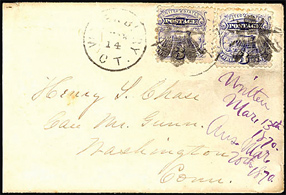 14
CT.
POSTAGE
POSTAGE
Henry S. Chase
Care Mr. Gunn.
Washington
Conn.
Written
Mar. 13th
1870.
Ans. Mar.
20th 1870.